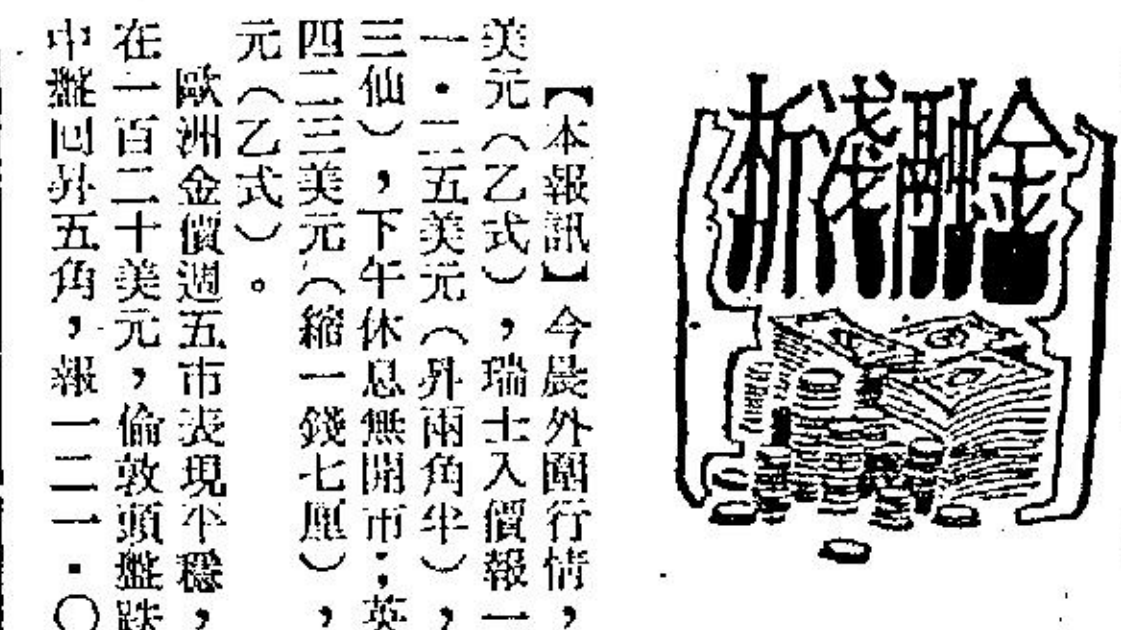 金融淺析
【本報訊】今晨外圍行情，
美元（乙式），瑞士入價報一
一・二五美元（昇兩角半），
三仙），下午休息無開市；英
四二三美元（縮一錢七厘），
元（乙式）。
歐洲金價週五市表現平穩，
在一百二十美元，倫敦頭盤跌
中盤回昇五角，報一二一・〇